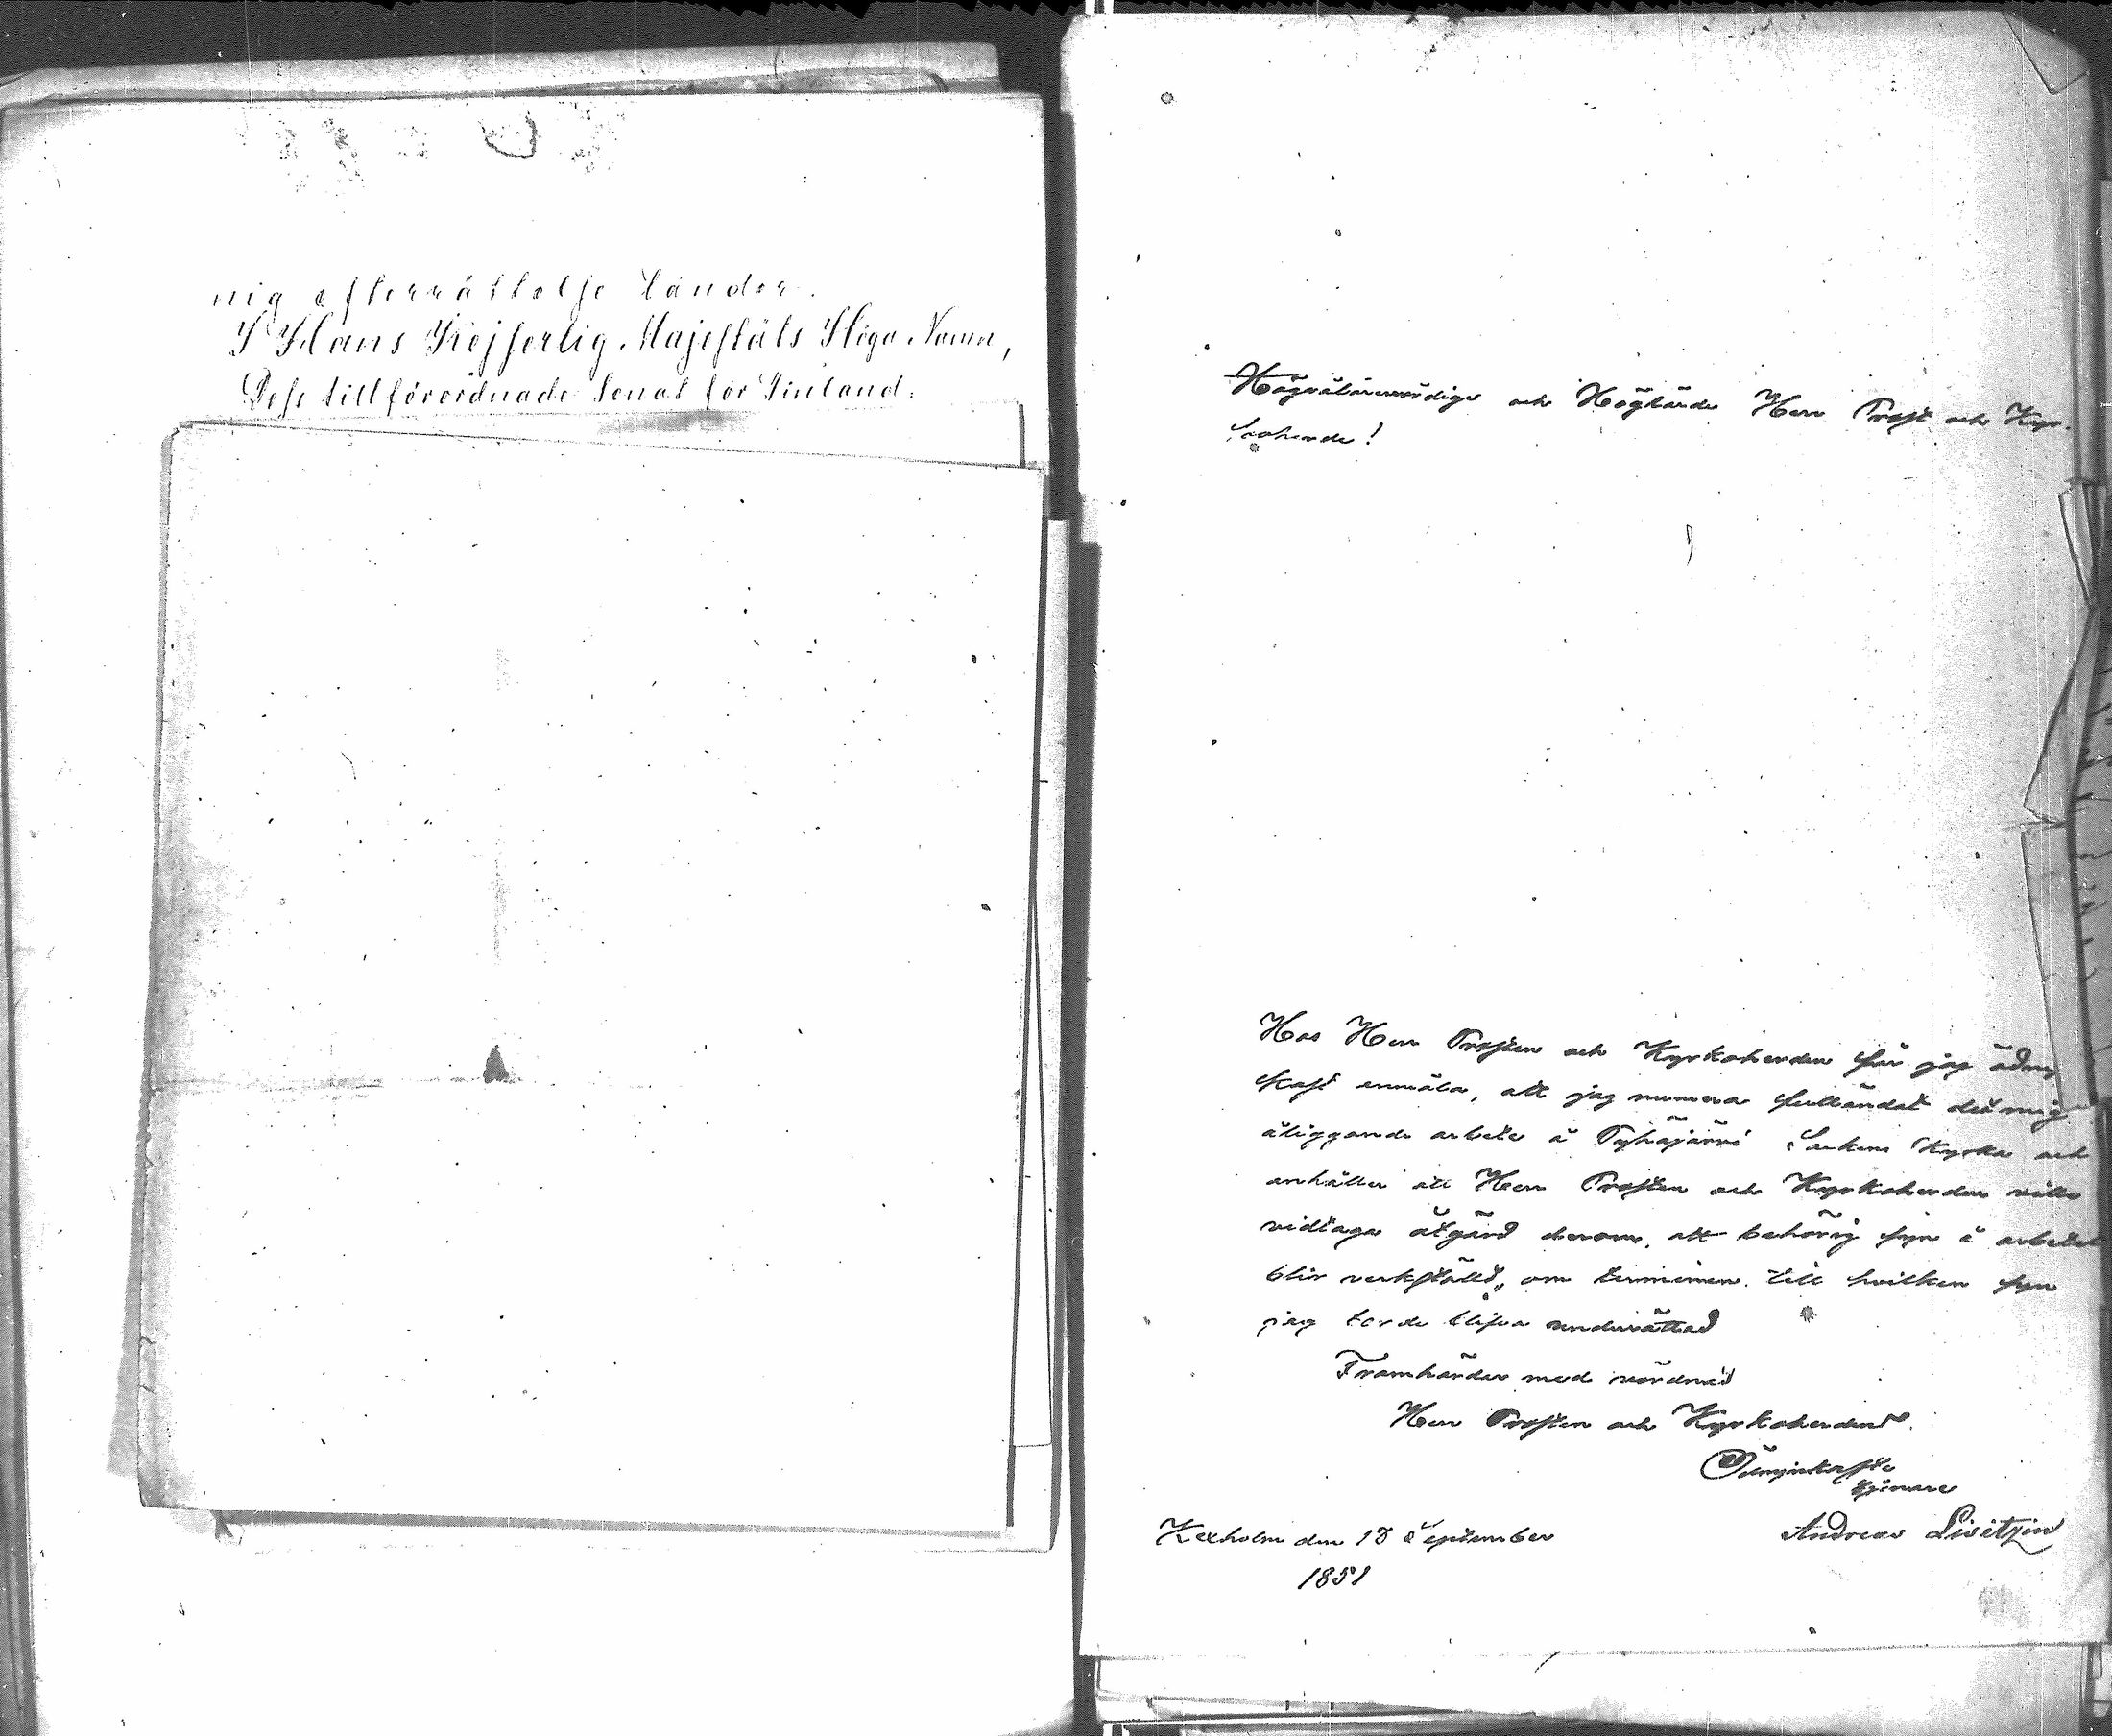 nig efterrättelse länder.
I Hans Kejserlig Majestäts Höga Namn,
Dess tillförordnade Senat för Finland.
Högvälärevördige och Höglärde Herr Prost och Kyr-
koherde!
Hos Herr Prosten och Kyrkoherden får jag ödmj
kast anmäla, att jag numera fulländat det mig
åliggande arbete å Pyhäjärvi Sockens Kyrka och
anhåller att Herr Prosten och Kyrkoherden ville
vidtaga åtgärd derom, att behörig syn å arbetet
blir verkställd, om terminen till hvilken syn
jag torde blifva underrättad
Framhärdar med vördnad
Herr Prostens och Kyrkoherdens
Ödmjukaste
tjenare
Andreas Livitzin
Kexholm den 18 September
1851